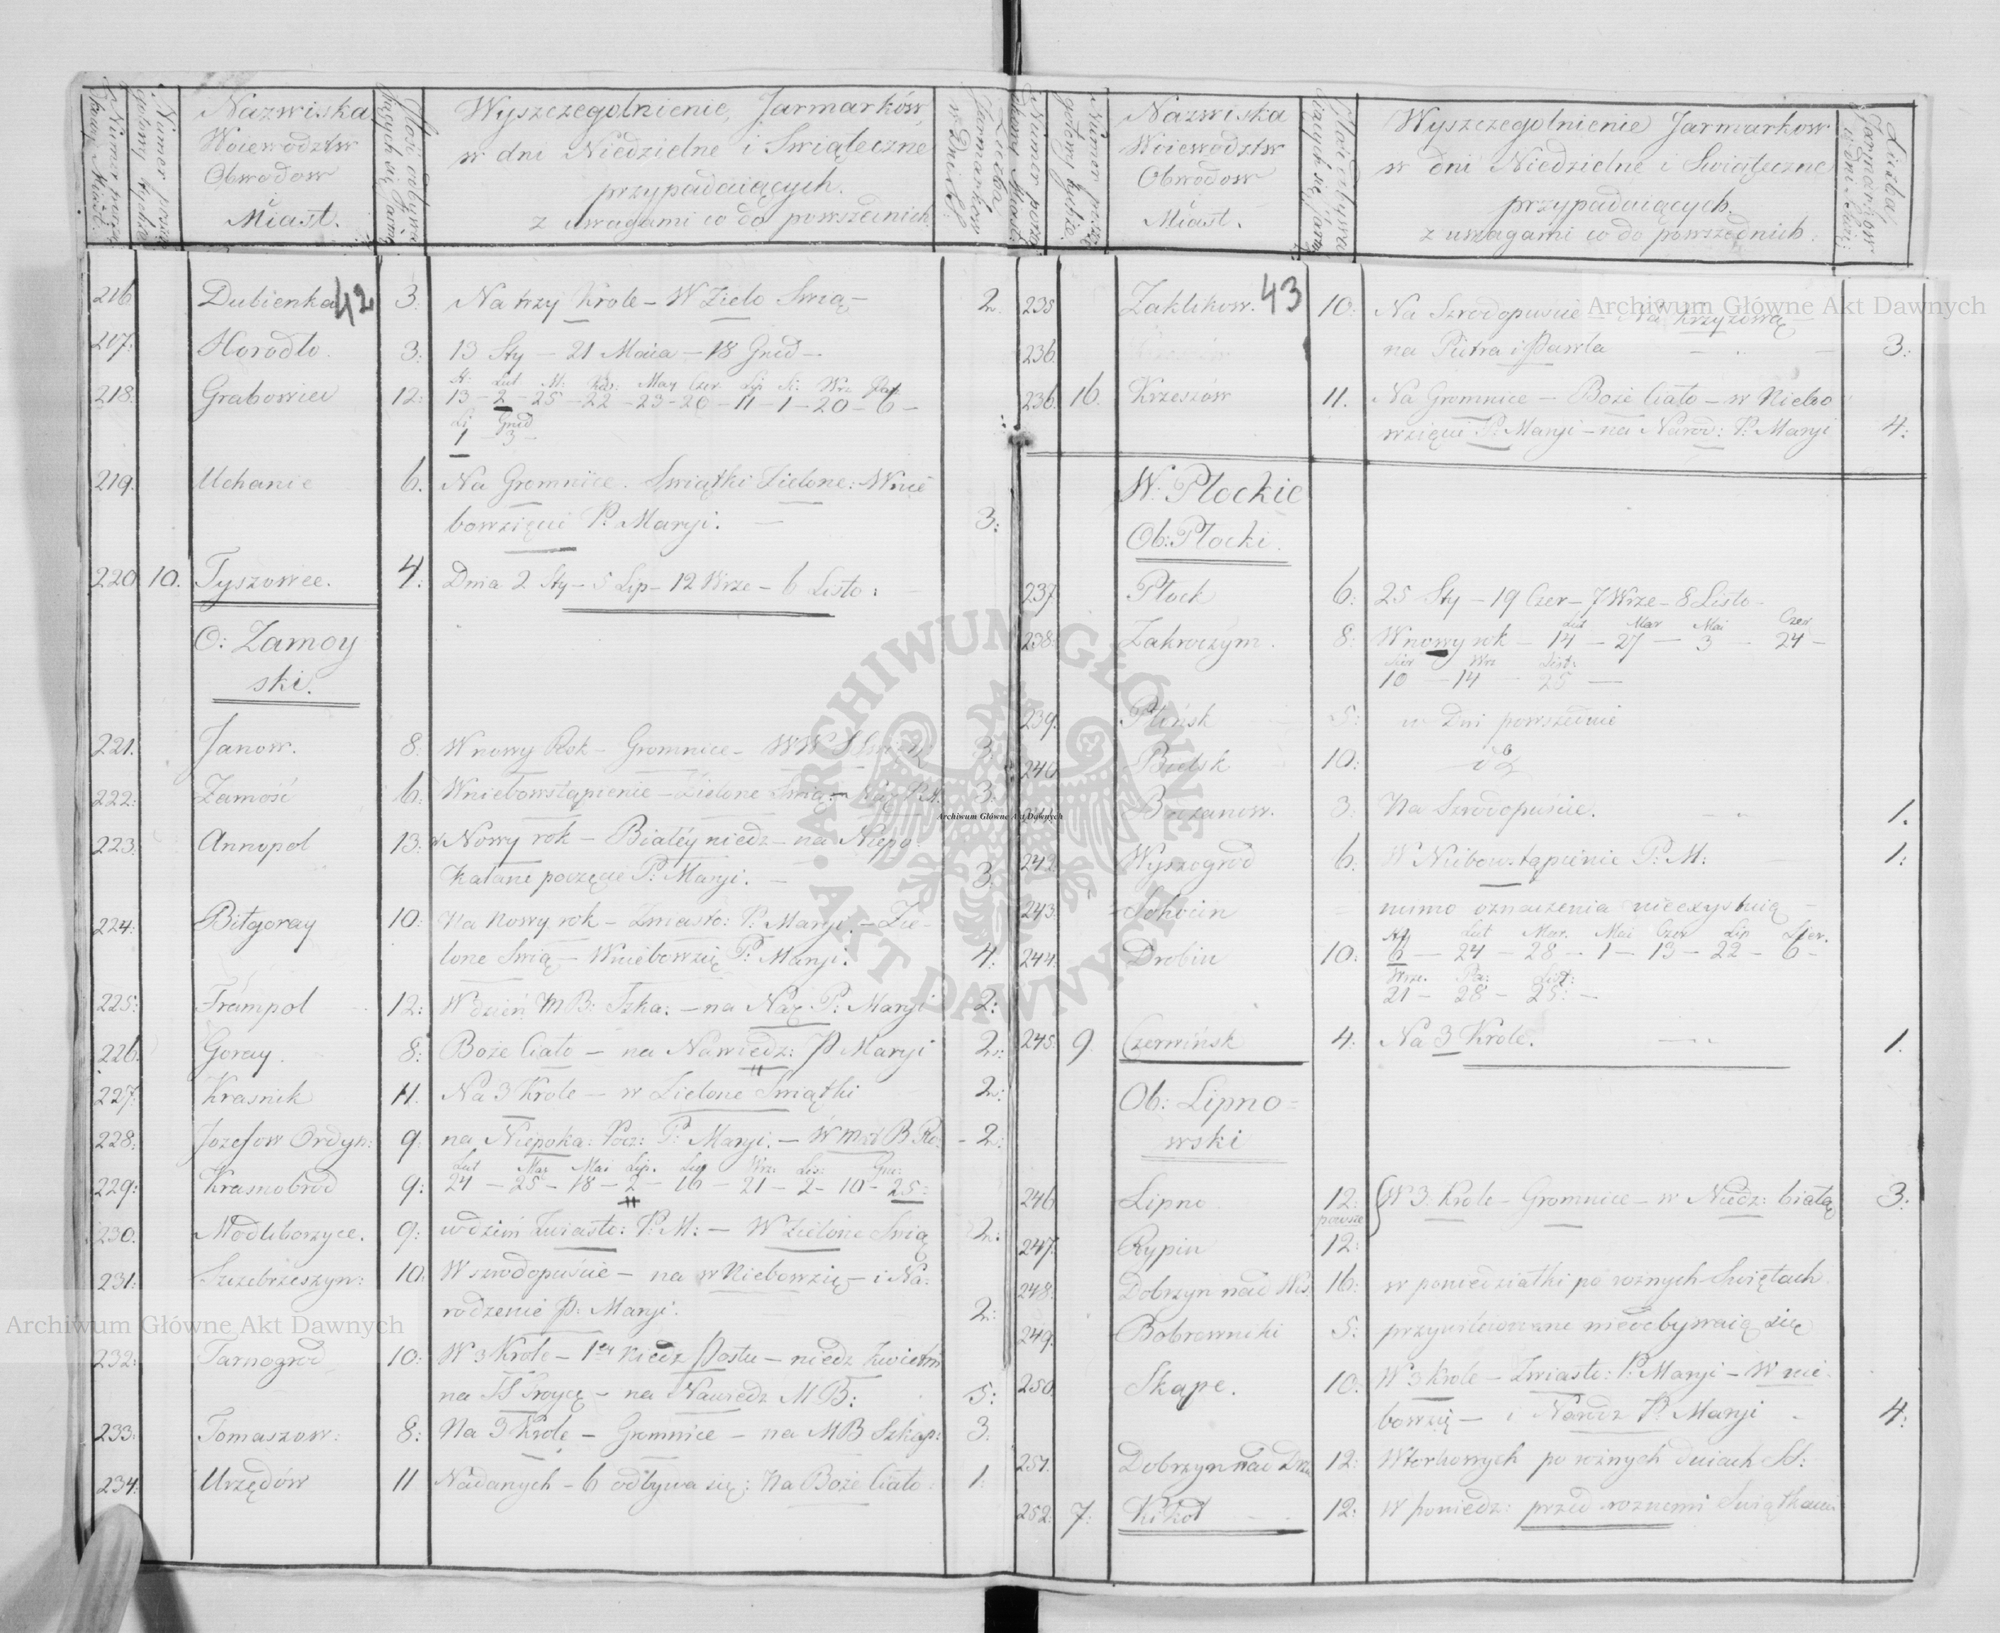 Nazwiska
Woiewodztw
Obwodow
i
Miast.
Wyszczegolnienie Jarmarków
w dni Niedzielne i Swiąteczne
przypadaiących.
z uwagami co do powszednich
42
216 Dubienka 3. Na trzy Krole – W Zielo Swią – 2.
217. Horodło. 3. 13 Sty – 21 Maia – 18 Grud –
218. Grabowiec 12. Lut M: May Czer Lip Wrz Paź
13 – 2 – 25 – 22 – 23 – 20 – 11 – 1 – 20 – 6 –
Li Grud
1 – 3 –
219. Uchanie 6. Na Gromnice. Swiątki Zielone: Wnie
bowzięcie P. Maryi. – 3:
220 10. Tyszowce. 4. Dnia 2 Sty – 5 Lip – 12 Wrze – 6 Listo:
O: Zamoy
ski.
221. Janow. 8. W nowy Rok – Gromnice – 3.
222. Zamość 6. Wniebowstąpienie – Zielone Swią – 3.
223. Annopol 13. Nowy rok – Białéy niedz – na Niepo
kalane poczęcie P. Maryi. – 3.
224. Biłgoray 10. Na Nowy rok – Zwiasto: P. Maryi. – Zie-
lone Swią – Wniebowzię P. Maryi. 4.
225. Frampol 12. W dzień M B: Szka: – na Nar. P: Maryi 2:
226. Goray. 8. Boże Ciało – na Nawiedz: P Maryi 2.
227. Krasnik 11. Na 3 Krole – w Zielone Swiątki 2.
228. Jozefow Ordyn: 9. na Niepoka: Pocz: P: Maryi. – W M B Ro: – 2:
Lut Mar Mai Lip. Wrz Lis: Gru:
229. Krasnobrod 9. 24 – 25 – 18 – 2 – 16 – 21 – 2 – 10 – 25:
230. Modliborzyce. 9. w dzień Zwiasto: P. M: – W Zielone Swią 2.
231. Szczebrzeszyn: 10. W szrodopuście – na w Niebowzię – i Na:
rodzenie P: Maryi. 2.
232. Tarnogrod 10. W 3 Krole – 1ą Niedz Postu – niedz Kwietni
na SS Troycę – na Nawiedz M B: 5.
233. Tomaszow: 8. Na 3 Krole – Gromnice – na MB Szkap: 3.
234. Urzędów 11 Nadanych – 6 odbywa się: Na Boże Ciało: 1.
Nazwiska
Woiewodztw
Obwodow
i
Miast.
Wyszczegolnienie Jarmarkow
w dni Niedzielne i Swiąteczne
przypadaiących.
z uwagami co do powszednich.
43
235 Zaklikow. 10. Na Szrodopuscie – Na Krzyzową
236. na Piotra i Pawła – 3.
236. 16. Krzeszów 11. Na Gromnice – Boże Ciało – w Niebo
wzięcie P. Maryi – na Narod: P. Maryi 4.
W. Płockie
Ob: Płocki.
237. Płock 6. 25 Sty – 19 Czer – 7 Wrze – 8 Listo –
Lut Mar Mai Czer
238. Zakroczym. 8. W nowy rok – 14 – 27 – 3 – 24 –
Sier Wrz List:
10 – 14 – 25 –
239. Płońsk 5. w Dni powszednie
240. Bielsk 10.
Bodzanow. 3. Na Szrodopuście. 1.
242. Wyszogrod 6. W Niebowstąpienie P. M: 1.
243. Sohocin mimo oznaczenia nieexystuią –
Lut Mar. Mai Czer Lip Sier.
244. Drobin 10. 6 – 24 – 28 – 1 – 13 – 22 – 6 –
Wrze. Pa: List:
21 – 28 – 25: –
245. 9. Czerwińsk 4. Na 3 Krole. 1.
Ob: Lipno=
wski
246 Lipno 12. W 3 Krole – Gromnice – w Niedz: białą 3.
powsze
247. Rypin 12.
248. Dobrzyn nad Wis. 16. w poniedziałki po rożnych Swiętach.
249. Bobrowniki 5. przywileiowane nieodbywaią się
250. Skąpe. 10. W 3 Krole – Zwiasto: P. Maryi – W nie
bowzię – i Narodz P. Maryi – 4.
251. Dobrzyn nad Drw. 12. Wtorkowych po rożnych dniach SS:
252. 7. Kikoł 12. w poniedz: przed roznemi Swiątkami
Archiwum Główne Akt Dawnych
Archiwum Główne Akt Dawnych
Archiwum Główne Akt Dawnych
ARCHIWUM GŁÓWNE • AKT DAWNYCH